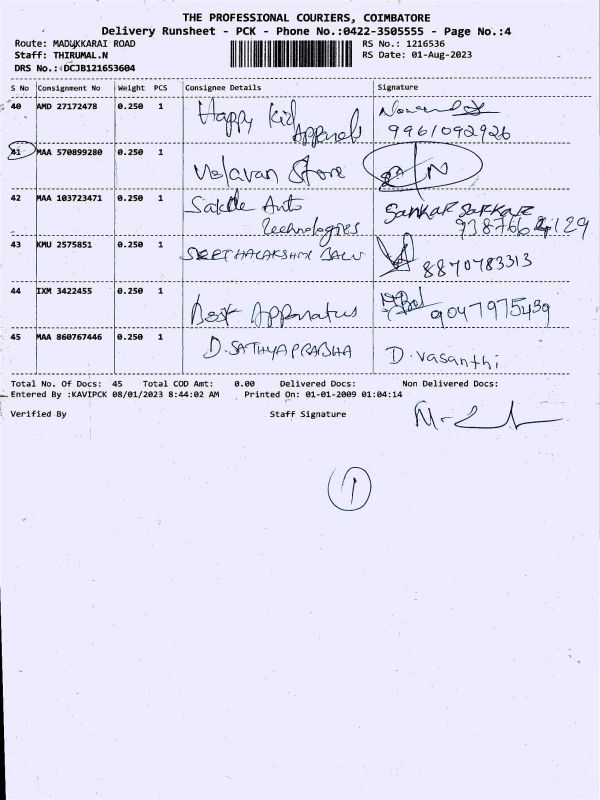 THE PROFESSIONAL COURIERS, COIMBATORE
Delivery Runsheet - PCK - Phone No.:0422-3505555 - Page No.:4
Route: MADUKKARAI ROAD RS No.: 1216536
Staff: THIRUMAL.N RS Date: 01-Aug-2023
DRS No.: DCJB121653604
S No Consignment No Weight PCS Consignee Details Signature
40 AMD 27172478 0.250 1 Happy Kid
Apparels 9961092926
41 MAA 570899280 0.250 1 Velavan Store
42 MAA 103723471 0.250 1 Auto Sankar Sarkar
Technologies
43 KMU 2575851 0.250 1 8870783313
44 IXM 3422455 0.250 1 Best Apparatus 9047975439
45 MAA 860767446 0.250 1 D. SATHYAPRABHA D. Vasanthi
Total No. Of Docs: 45 Total COD Amt: 0.00 Delivered Docs: Non Delivered Docs:
Entered By :KAVIPCK 08/01/2023 8:44:02 AM Printed On: 01-01-2009 01:04:14
Verified By Staff Signature
1